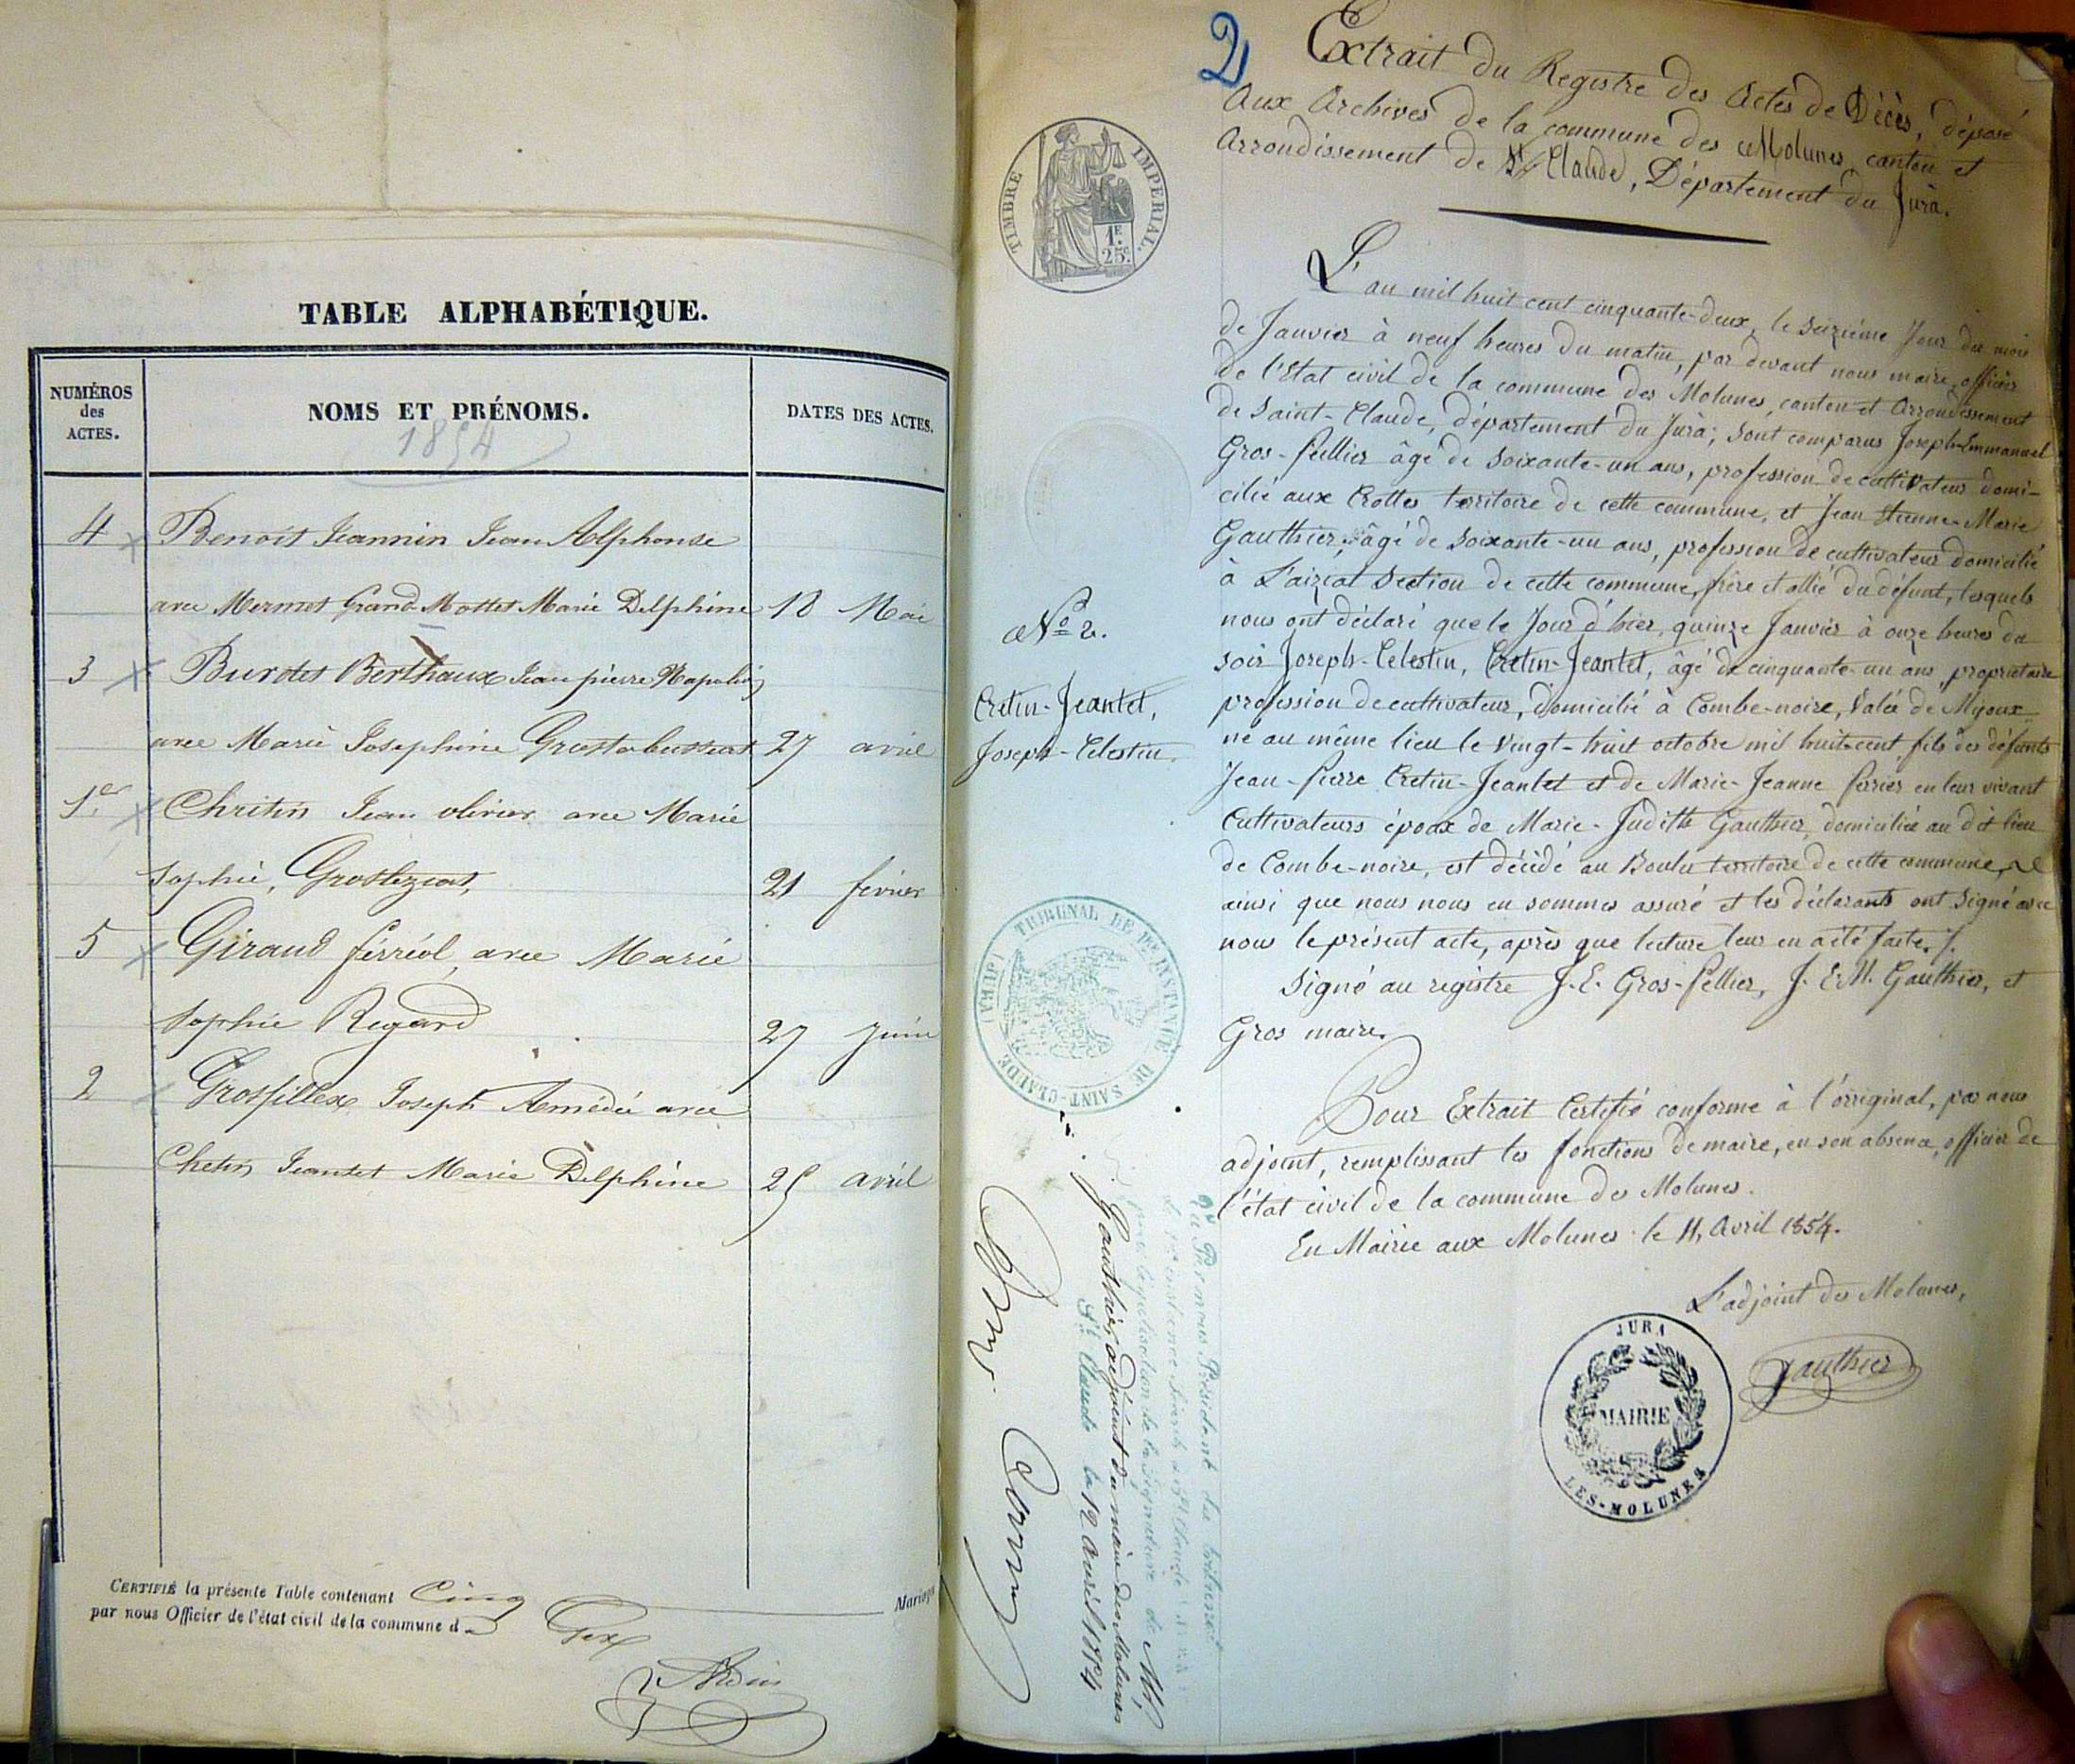 TABLE ALPHABÉTIQUE.
NUMÉROS
des
ACTES.
NOMS ET PRÉNOMS.
DATES DES ACTES.
1854
4 Benoit Jeannin Jean Alphonse
avec Mermet Grand-Mottet Marie Delphine 18 Mai
3 Burdet Berthaux Jean pierre Napoléon
avec Marie Josephine 27 avril
1er Chritin Jean olivier avec Marie
Sophie, 21 fevrier
5 Giraud férréol, avec Marie
Sophie Regard 27 Juin
2 Grosfillex Joseph Amédée avec
Chetin Jeantet Marie Delphine 25 avril
CERTIFIÉ la présente Table contenant Cinq Mariages
par nous Officier de l'état civil de la commune d
Gex
2
Extrait du Registre des Actes de Décès, déposé
Aux Archives de la commune des Molunes, canton et
Arrondissement de St Claude, Département du Jura.
TIMBRE IMPERIAL.
1F.
25c.
L'an mil huit cent cinquante-deux, le seizième Jour du mois
de Janvier à neuf heures du matin, par devant nous maire, officier
de l'Etat civil de la commune des Molunes, canton et Arrondissement
de Saint-Claude, département du Jura; sont comparus Joseph-Emmanuel
Gros-Pellier âgé de soixante-un ans, profession de cultivateur domi-
cilié aux Crottes territoire de cette commune, et Jean Etienne-Marie
Gauthier, âgé de soixante-un ans, profession de cultivateur domicilié
à L'aiziat section de cette commune, frère et allié du défunt, lesquels
nous ont déclaré que le Jour d'hier, quinze Janvier à onze heures du
soir Joseph-Celestin, Cretin-Jeantet, âgé de cinquante-un ans, propriétaire
profession de cultivateur, domicilié à Combe-noire, Valée de Mijoux
né au même lieu le vingt-huit octobre mil huit-cent, fils des défunts
Jean-Pierre Cretin-Jeantet et de Marie-Jeanne Perrier en leur vivant
Cultivateurs époux de Marie-Judith Gauthier, domiciliée au dit lieu
de Combe-noire, est décédé au Boulu territoire de cette commune,
ainsi que nous nous en sommes assuré et les déclarants ont signé avec
nous le présent acte, après que lecture leur en a été faite./.
Signé au registre J.-E. Gros-Pellier, J. E. M. Gauthier, et
Gros maire.
No 2.
Cretin-Jeantet,
Joseph-Celestin.
TRIBUNAL DE PRE INSTANCE DE SAINT-CLAUDE (JURA)
Pour Extrait Certifié conforme à l'original, par nous
adjoint, remplissant les fonctions de maire, en son absence, officier de
l'état civil de la commune des Molunes.
En Mairie aux Molunes le 11, Avril 1854.
L'adjoint des Molunes,
Gauthier
JURA
MAIRIE
LES-MOLUNES
Vu Par nous Président du tribunal
pour légalisation de la signature de Mr
Gauthier, adjoint du maire des Molunes
St Claude le 12 Avril 1854